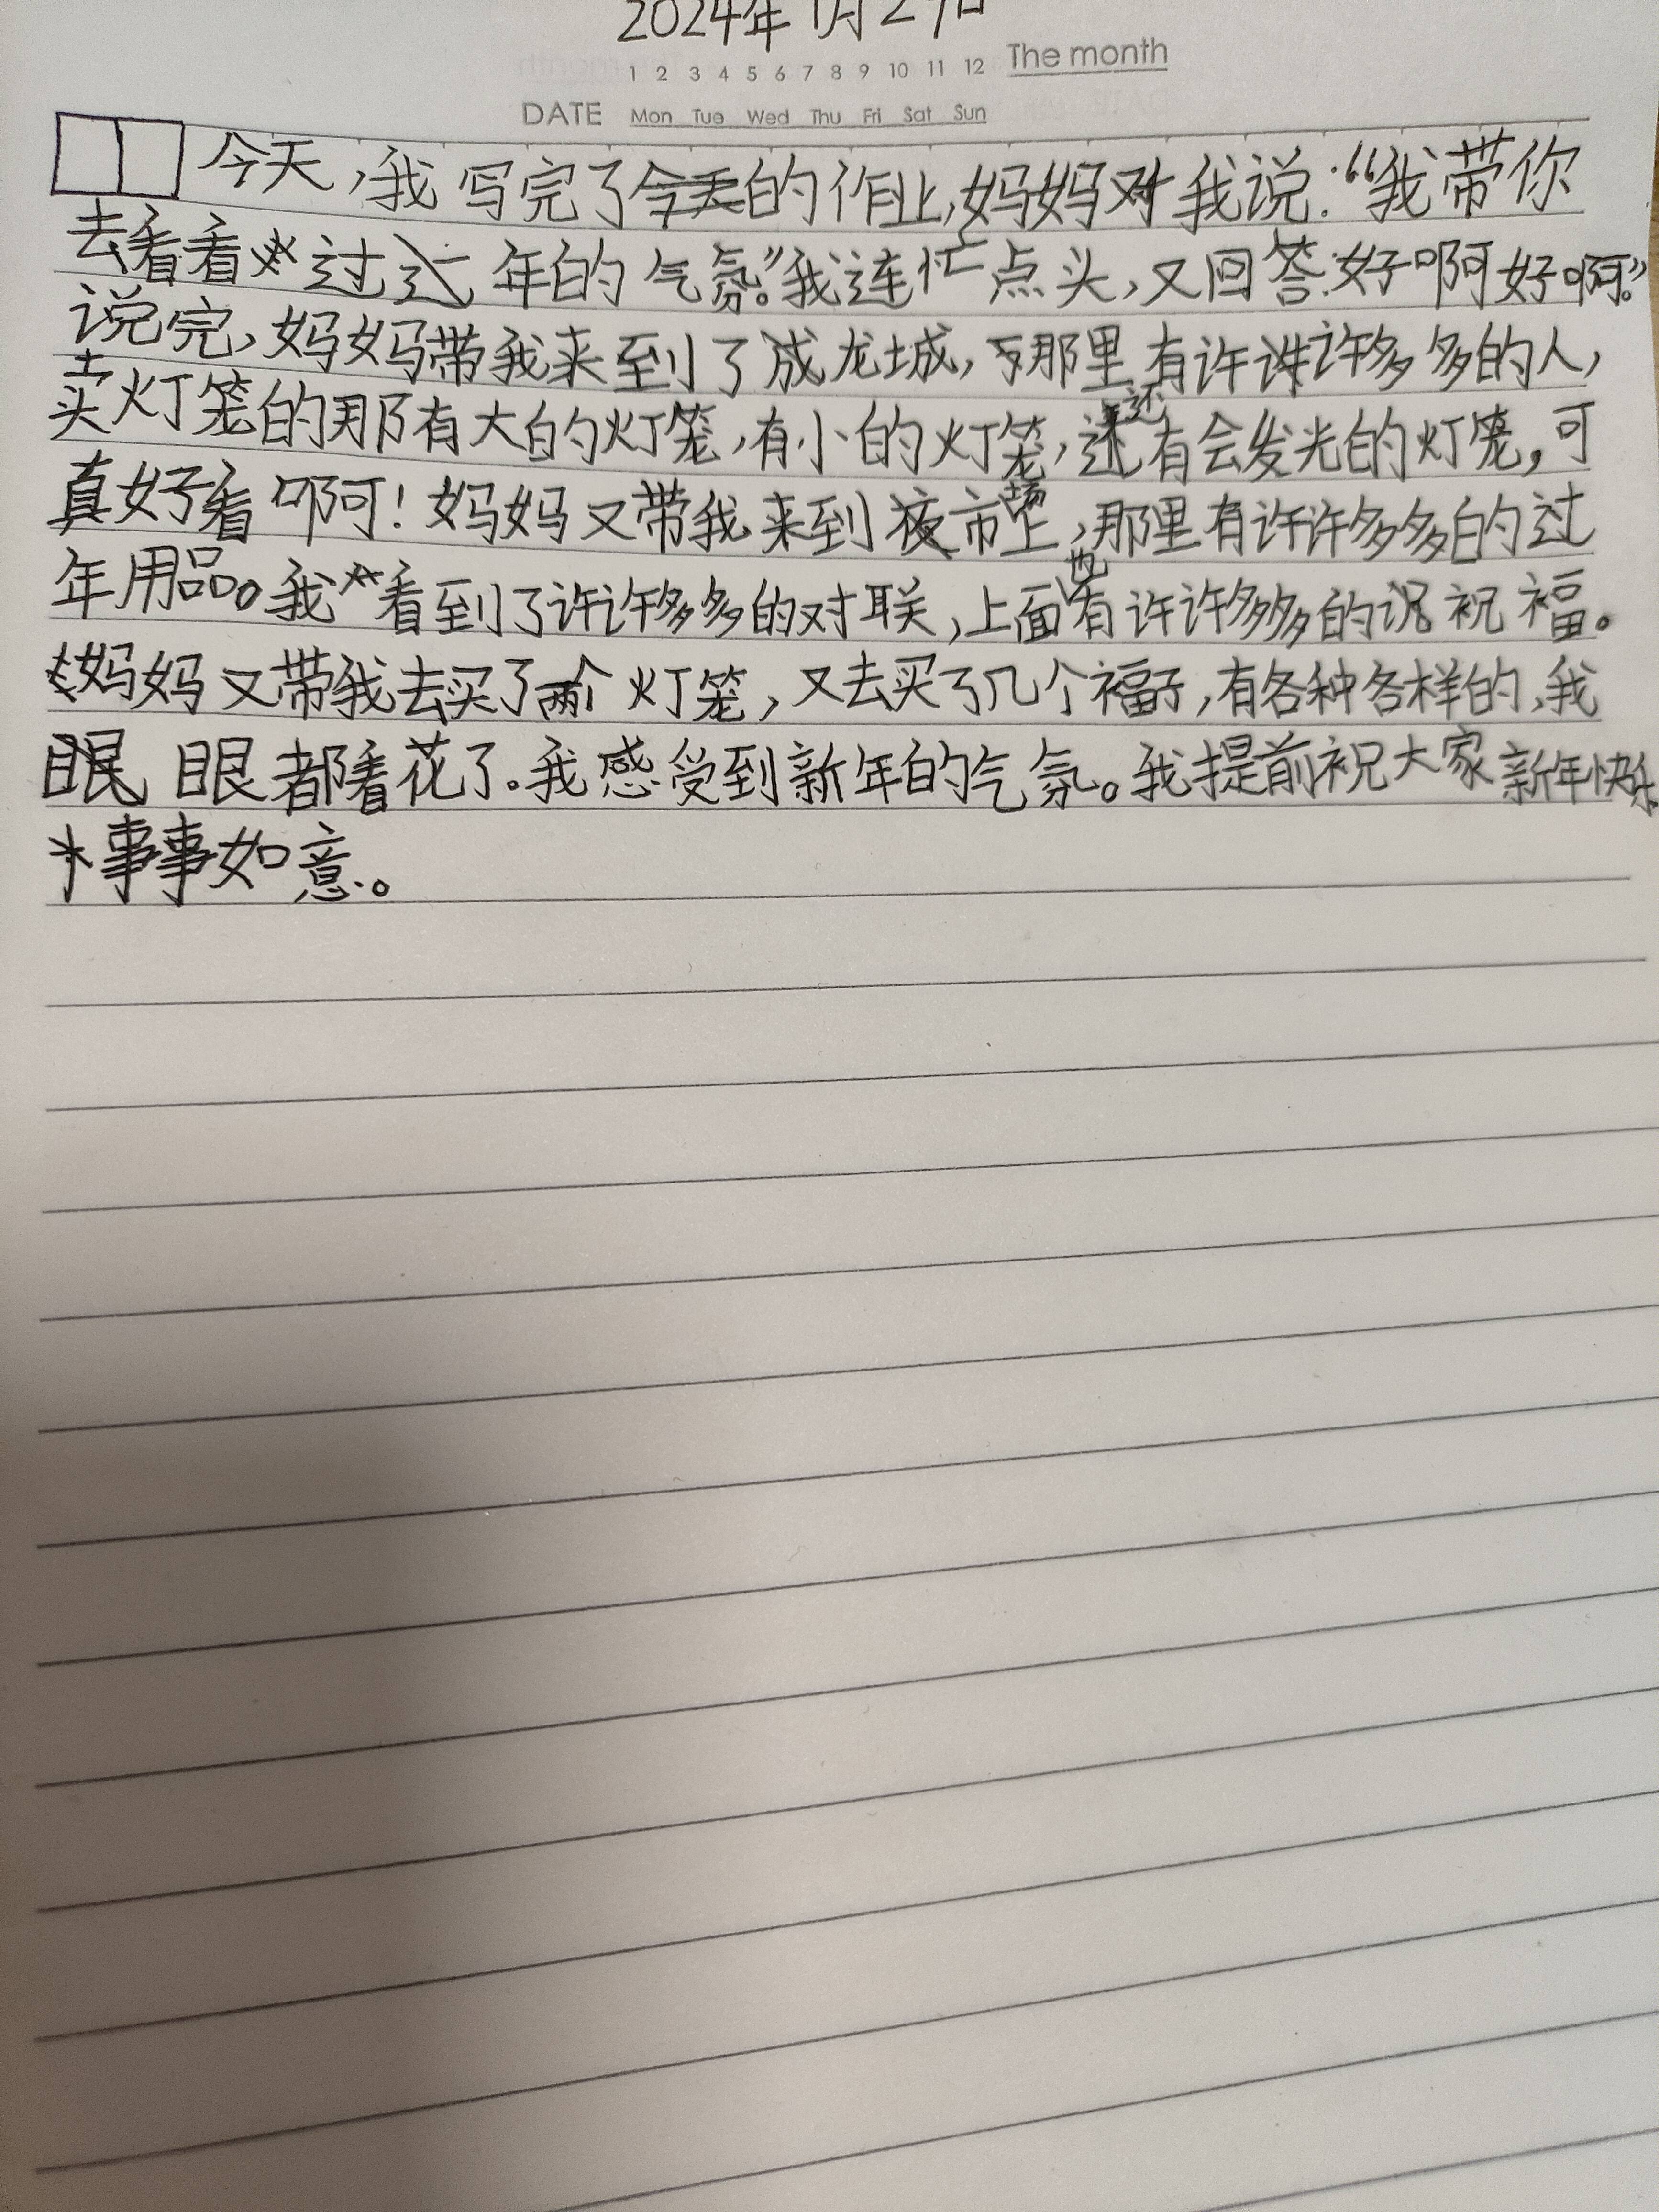 2024年1月29日
1 2 3 4 5 6 7 8 9 10 11 12 The month
DATE Mon Tue Wed Thu Fri Sat Sun
今天,我写完了今天的作业,妈妈对我说:“我带你
去看看过年的气氛。”我连忙点头,又回答:好啊好啊。”
说完,妈妈带我来到了成龙城,那里有许许多多的人,
卖灯笼的那有大的灯笼,有小的灯笼,还有会发光的灯笼,可
真好看啊!妈妈又带我来到夜市场上,那里有许许多多的过
年用品。我看到了许许多多的对联,上面也有许许多多的祝福。
妈妈又带我去买了两个灯笼,又去买了几个福子,有各种各样的,我
眼都看花了.我感受到新年的气氛。我提前祝大家新年快乐
事事如意。